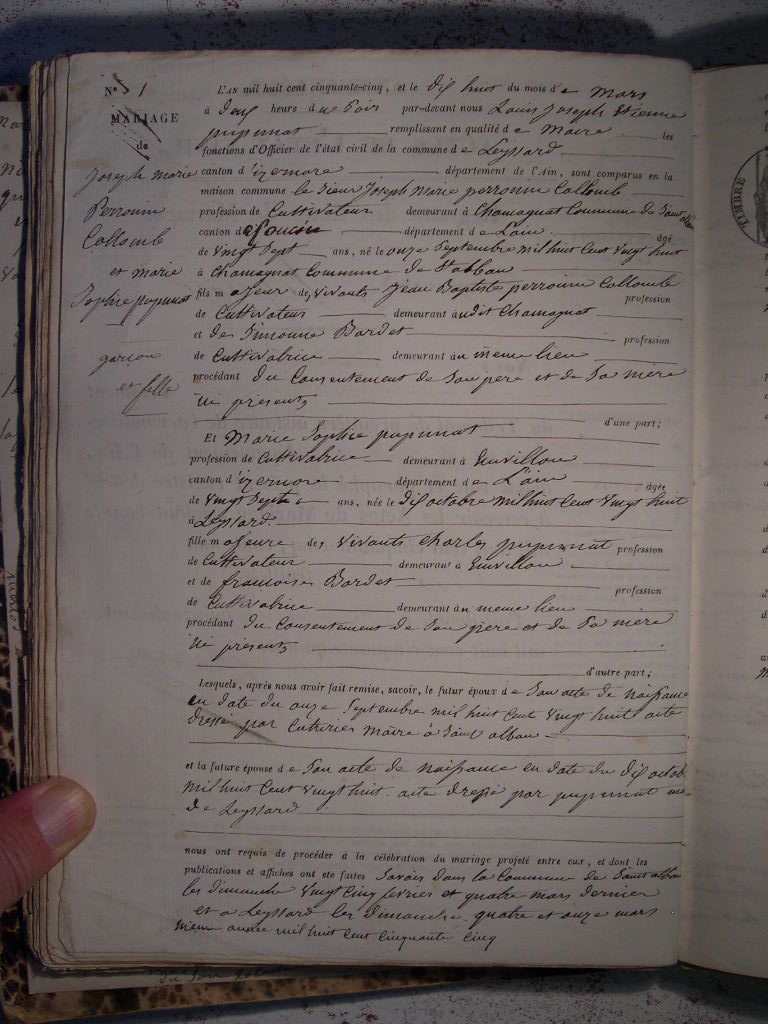 N° 1
MARIAGE
de
Joseph marie
Perronin
Collomb
et marie
Sophie pupunat
garçon
et fille
L'AN mil huit cent cinquante-cinq, et le dix huit du mois de Mars
à deux heure du Soir par-devant nous Louis Joseph Etienne
pupunat remplissant en qualité de Maire les
fonctions d'Officier de l'état civil de la commune de Leyssard
canton d'izernore département de l'Ain, sont comparus en la
maison commune le Sieur Joseph Marie perronin Collomb
profession de Cultivateur demeurant à Chamagnat Commune de Saint alban
canton de Poncin département de L'ain âgé
de Vingt Sept ans, né le onze Septembre mil huit Cent Vingt huit
à Chamagnat Commune de St alban
fils majeur de, vivants Jean Baptiste perronin Collomb profession
de Cultivateur demeurant audit Chamagnat
et de Simonne Bardet profession
de Cultivatrice demeurant au meme lieu
procédant du Consentement de Son pere et de Sa mère
ici présents
d'une part;
Et Marie Sophie pupunat
profession de Cultivatrice demeurant à
canton d'izernore département de L'ain âgée
de Vingt Sept ans, née le dix octobre mil huit Cent Vingt huit
à Leyssard
fille majeure de, vivants Charles pupunat profession
de Cultivateur demeurant à
et de francoise Bardet profession
de Cultivatrice demeurant au meme lieu
procédant du Consentement de Son père et de Sa mère
ici présents
d'autre part;
Lesquels, après nous avoir fait remise, savoir, le futur époux de Son acte de naissance
en date du onze Septembre mil huit Cent Vingt huit acte
dressé par maire à Saint alban
et la future épouse de Son acte de naissance en date du dix octob
mil huit Cent Vingt huit. acte dressé par pupunat
de Leyssard
nous ont requis de procéder à la célébration du mariage projeté entre eux, et dont les
publications et affiches ont été faites Savoir dans la Commune de Saint alban
les dimanche Vingt Cinq fevrier et quatre mars dernier
et a Leyssard les dimanche quatre et onze mars
meme année mil huit Cent Cinquante Cinq
TIMBRE